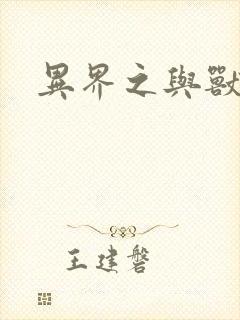 異界之與獸
王建磐